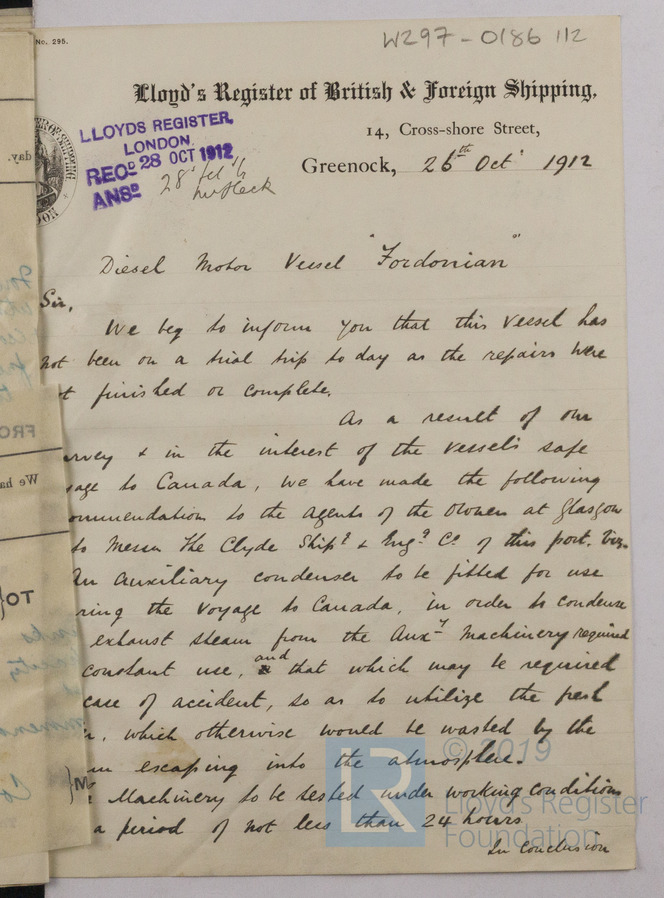 No. 295.
W297-0186 1/2
Lloyd's Register of British & Foreign Shipping,
14, Cross-shore Street,
Greenock, 26th Oct' 1912
LLOYDS REGISTER,
LONDON.
RECD 28 OCT 1912
ANSD
Diesel Motor Vessel "Fordonian"
Sir,
We beg to inform you that this vessel has
not been on a trial trip to day as the repairs were
finished or complete.
As a result of our
& in the interest of the vessel's safe
to Canada, we have made the following
to the agents of the owners at Glasgow
to Messrs The Clyde Shipg & Engg Co of this port. Viz.
An auxiliary condenser to be fitted for use
the voyage to Canada, in order to condense
exhaust steam from the Auxy machinery required
constant use, and that which may be required
case of accident, so as to utilize the fresh
, which otherwise would be wasted by the
escaping into the atmosphere.
Machinery to be tested under working conditions
a period of not less than 24 hours
In conclusion
FRO
We ha
TO
}M
© 2019
LR
Lloyd's Register
Foundation